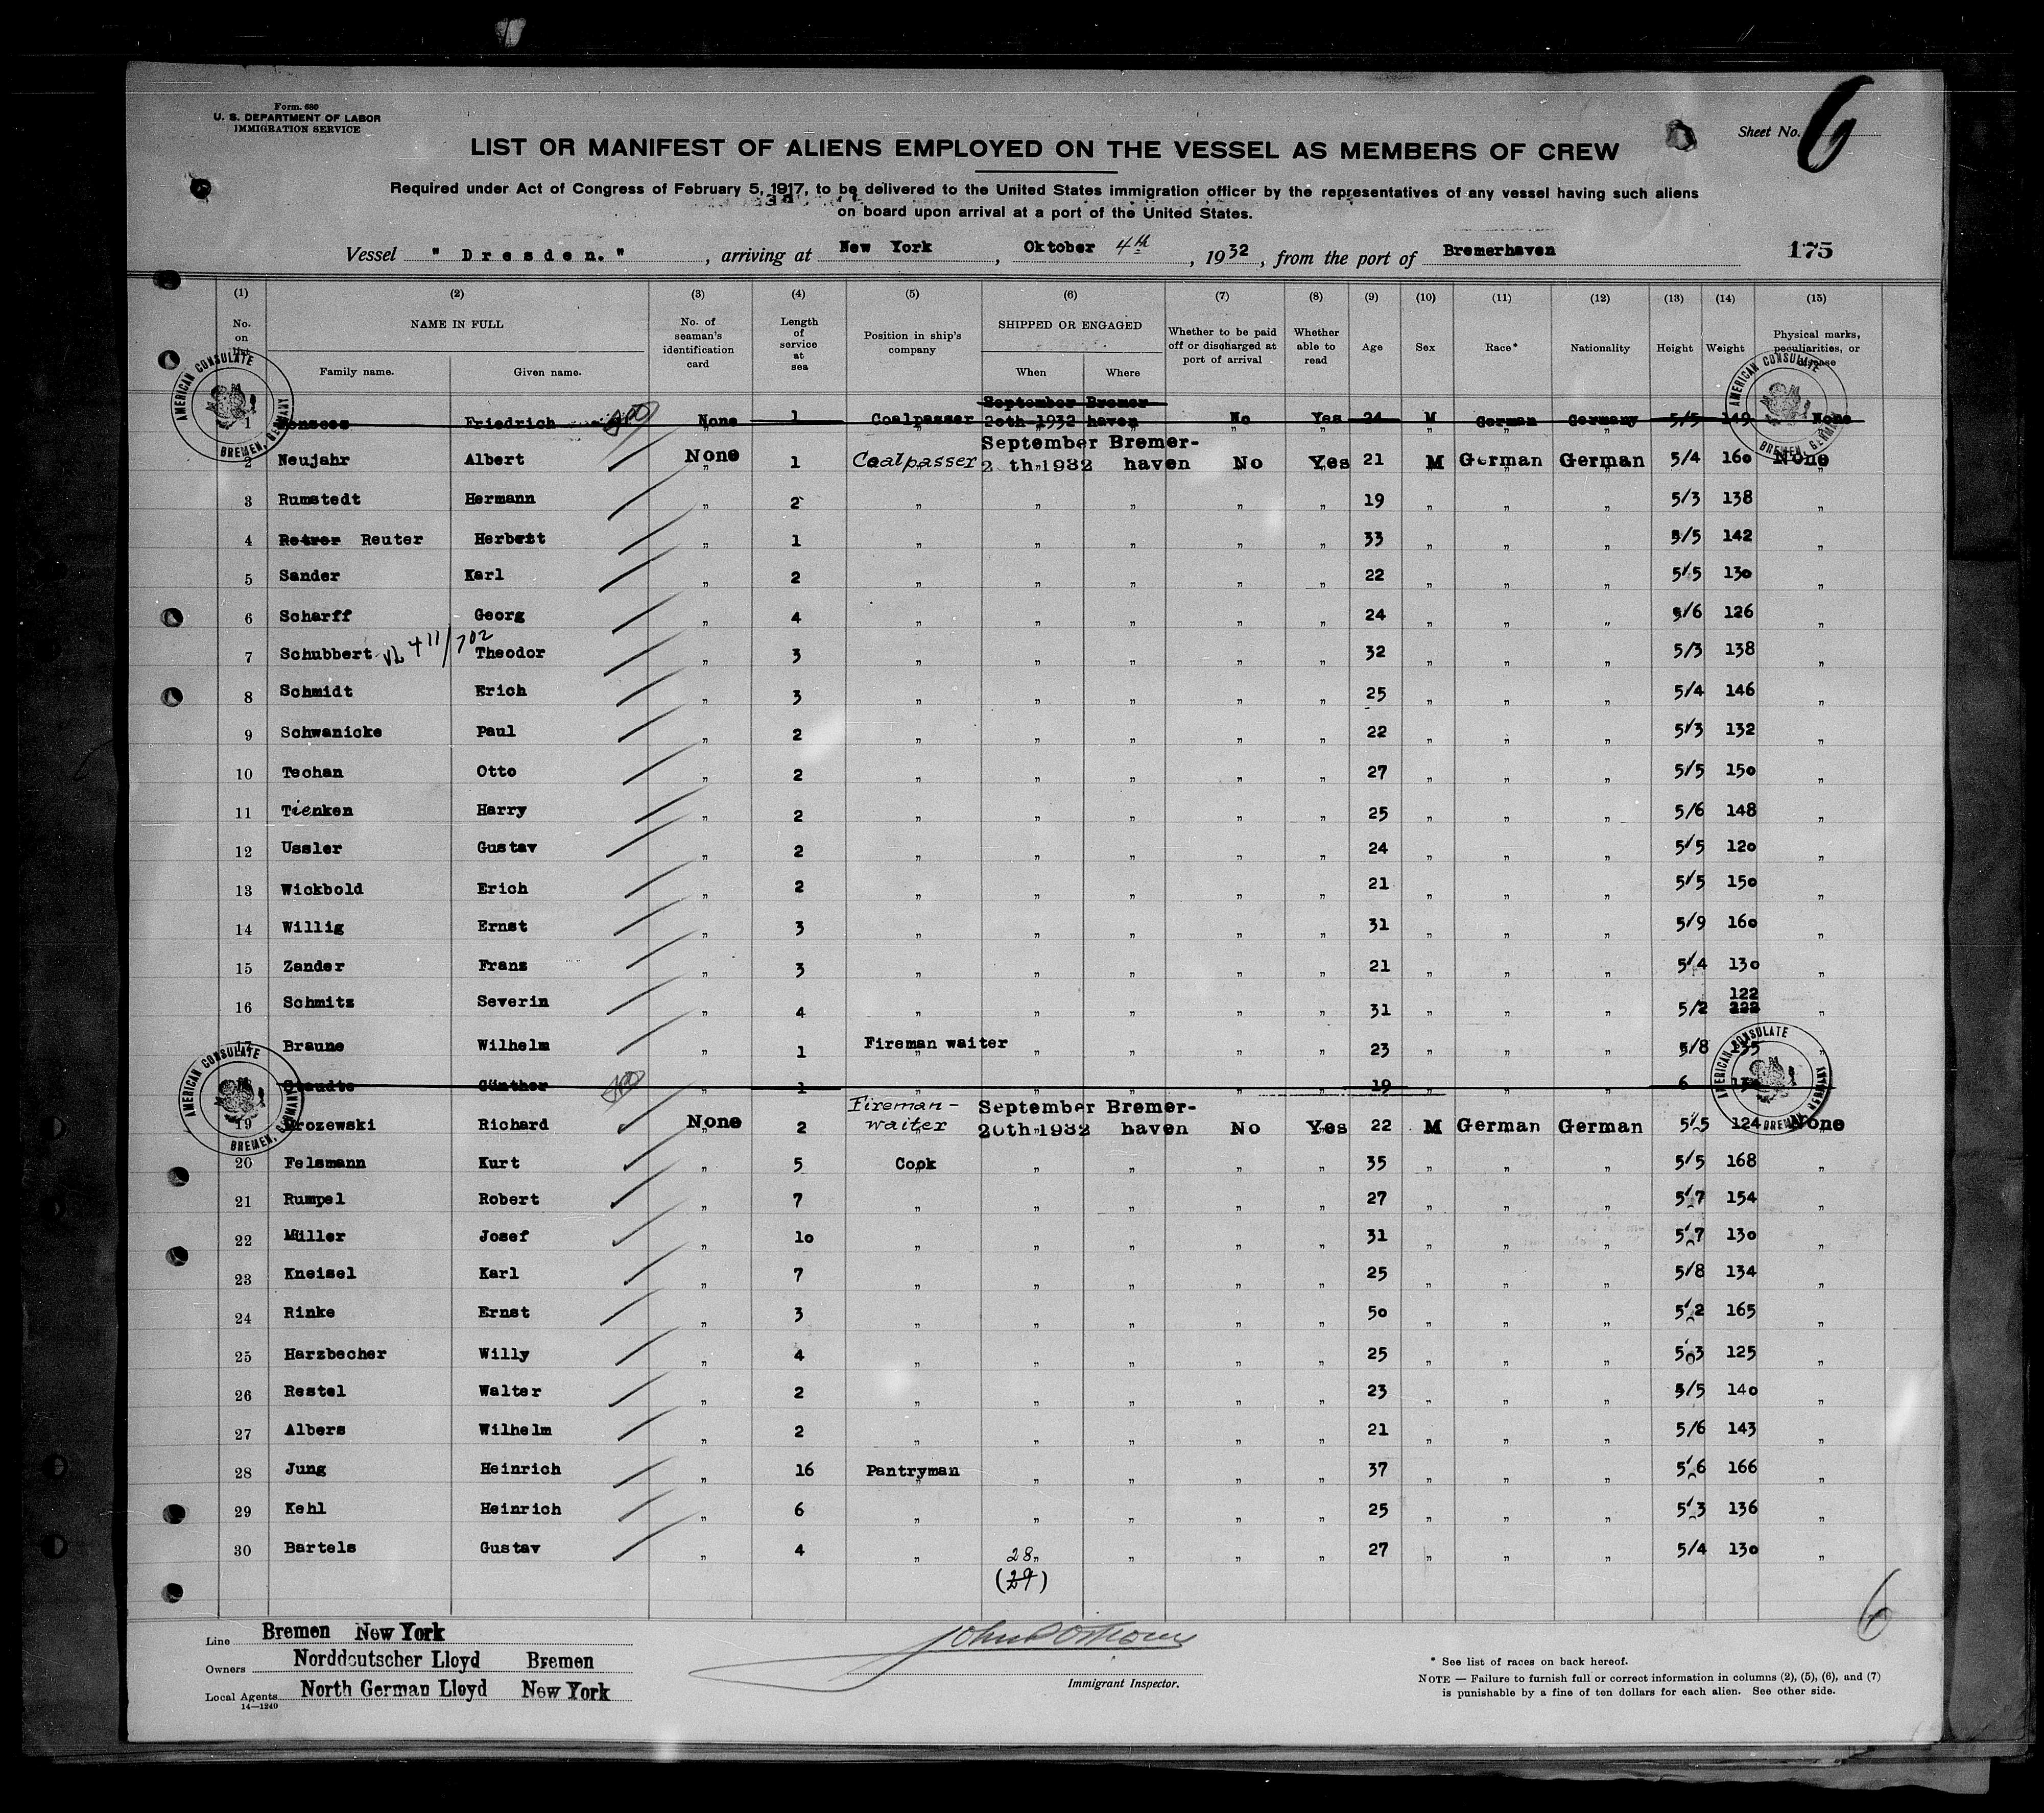 Form. 680
U. S. DEPARTMENT OF LABOR
IMMIGRATION SERVICE
Sheet No. 6
LIST OR MANIFEST OF ALIENS EMPLOYED ON THE VESSEL AS MEMBERS OF CREW
Required under Act of Congress of February 5, 1917, to be delivered to the United States immigration officer by the representatives of any vessel having such aliens
on board upon arrival at a port of the United States.
Vessel "Dresden." , arriving at New York , Oktober 4th , 1932 , from the port of Bremerhaven 175
(1) (2) (3) (4) (5) (6) (7) (8) (9) (10) (11) (12) (13) (14) (15)
No. on list NAME IN FULL Family name. Given name. No. of seaman's identification card Length of service at sea Position in ship's company SHIPPED OR ENGAGED When Where Whether to be paid off or discharged at port of arrival Whether able to read Age Sex Race* Nationality Height Weight Physical marks, peculiarities, or disease
AMERICAN CONSULATE BREMEN, GERMANY
AMERICAN CONSULATE BREMEN, GERMANY
September Bremer-
1 Friedrich None 1 Coalpasser 20th 1932 haven No Yes 24 M German Germany 5/5 149 None
September Bremer-
2 Neujahr Albert None 1 Coalpasser 2 th 1932 haven No Yes 21 M German German 5/4 160 None
3 Rumstedt Hermann " 2 " " " " " 19 " " " 5/3 138 "
4 Retrer Reuter Herbert " 1 " " " " " 33 " " " 5/5 142 "
5 Sander Karl " 2 " " " " " 22 " " " 5/5 130 "
6 Scharff Georg " 4 " " " " " 24 " " " 5/6 126 "
7 Schubbert 411/702 Theodor " 3 " " " " " 32 " " " 5/3 138 "
8 Schmidt Erich " 3 " " " " " 25 " " " 5/4 146 "
9 Schwanicke Paul " 2 " " " " " 22 " " " 5/3 132 "
10 Techan Otto " 2 " " " " " 27 " " " 5/5 150 "
11 Tienken Harry " 2 " " " " " 25 " " " 5/6 148 "
12 Ussler Gustav " 2 " " " " " 24 " " " 5/5 120 "
13 Wickbold Erich " 2 " " " " " 21 " " " 5/5 150 "
14 Willig Ernst " 3 " " " " " 31 " " " 5/9 160 "
15 Zander Franz " 3 " " " " " 21 " " " 5/4 130 "
122
16 Schmitz Severin " 4 " " " " " 31 " " " 5/2 222 "
17 Braune Wilhelm " 1 Fireman waiter " " " " 23 " " " 5/8 135 "
AMERICAN CONSULATE BREMEN, GERMANY
AMERICAN CONSULATE BREMEN, GERMANY
Staudte Günther " 1 " " " " " 19 " " " 6 "
Fireman- September Bremer-
19 Drozewski Richard None 2 waiter 20th 1932 haven No Yes 22 M German German 5/5 124 None
20 Felsmann Kurt " 5 Cook " " " " 35 " " " 5/5 168 "
21 Rumpel Robert " 7 " " " " " 27 " " " 5/7 154 "
22 Müller Josef " 10 " " " " " 31 " " " 5/7 130 "
23 Kneisel Karl " 7 " " " " " 25 " " " 5/8 134 "
24 Rinke Ernst " 3 " " " " " 50 " " " 5/2 165 "
25 Harzbecher Willy " 4 " " " " " 25 " " " 5/3 125 "
26 Restel Walter " 2 " " " " " 23 " " " 5/5 140 "
27 Albers Wilhelm " 2 " " " " " 21 " " " 5/6 143 "
28 Jung Heinrich " 16 Pantryman " " " " 37 " " " 5/6 166 "
29 Kehl Heinrich " 6 " " " " " 25 " " " 5/3 136 "
30 Bartels Gustav " 4 " " " " " 27 " " " 5/4 130 "
28
(29)
6
Line Bremen New York
Owners Norddeutscher Lloyd Bremen
Local Agents North German Lloyd New York
14—1240
Immigrant Inspector.
* See list of races on back hereof.
NOTE — Failure to furnish full or correct information in columns (2), (5), (6), and (7)
is punishable by a fine of ten dollars for each alien. See other side.